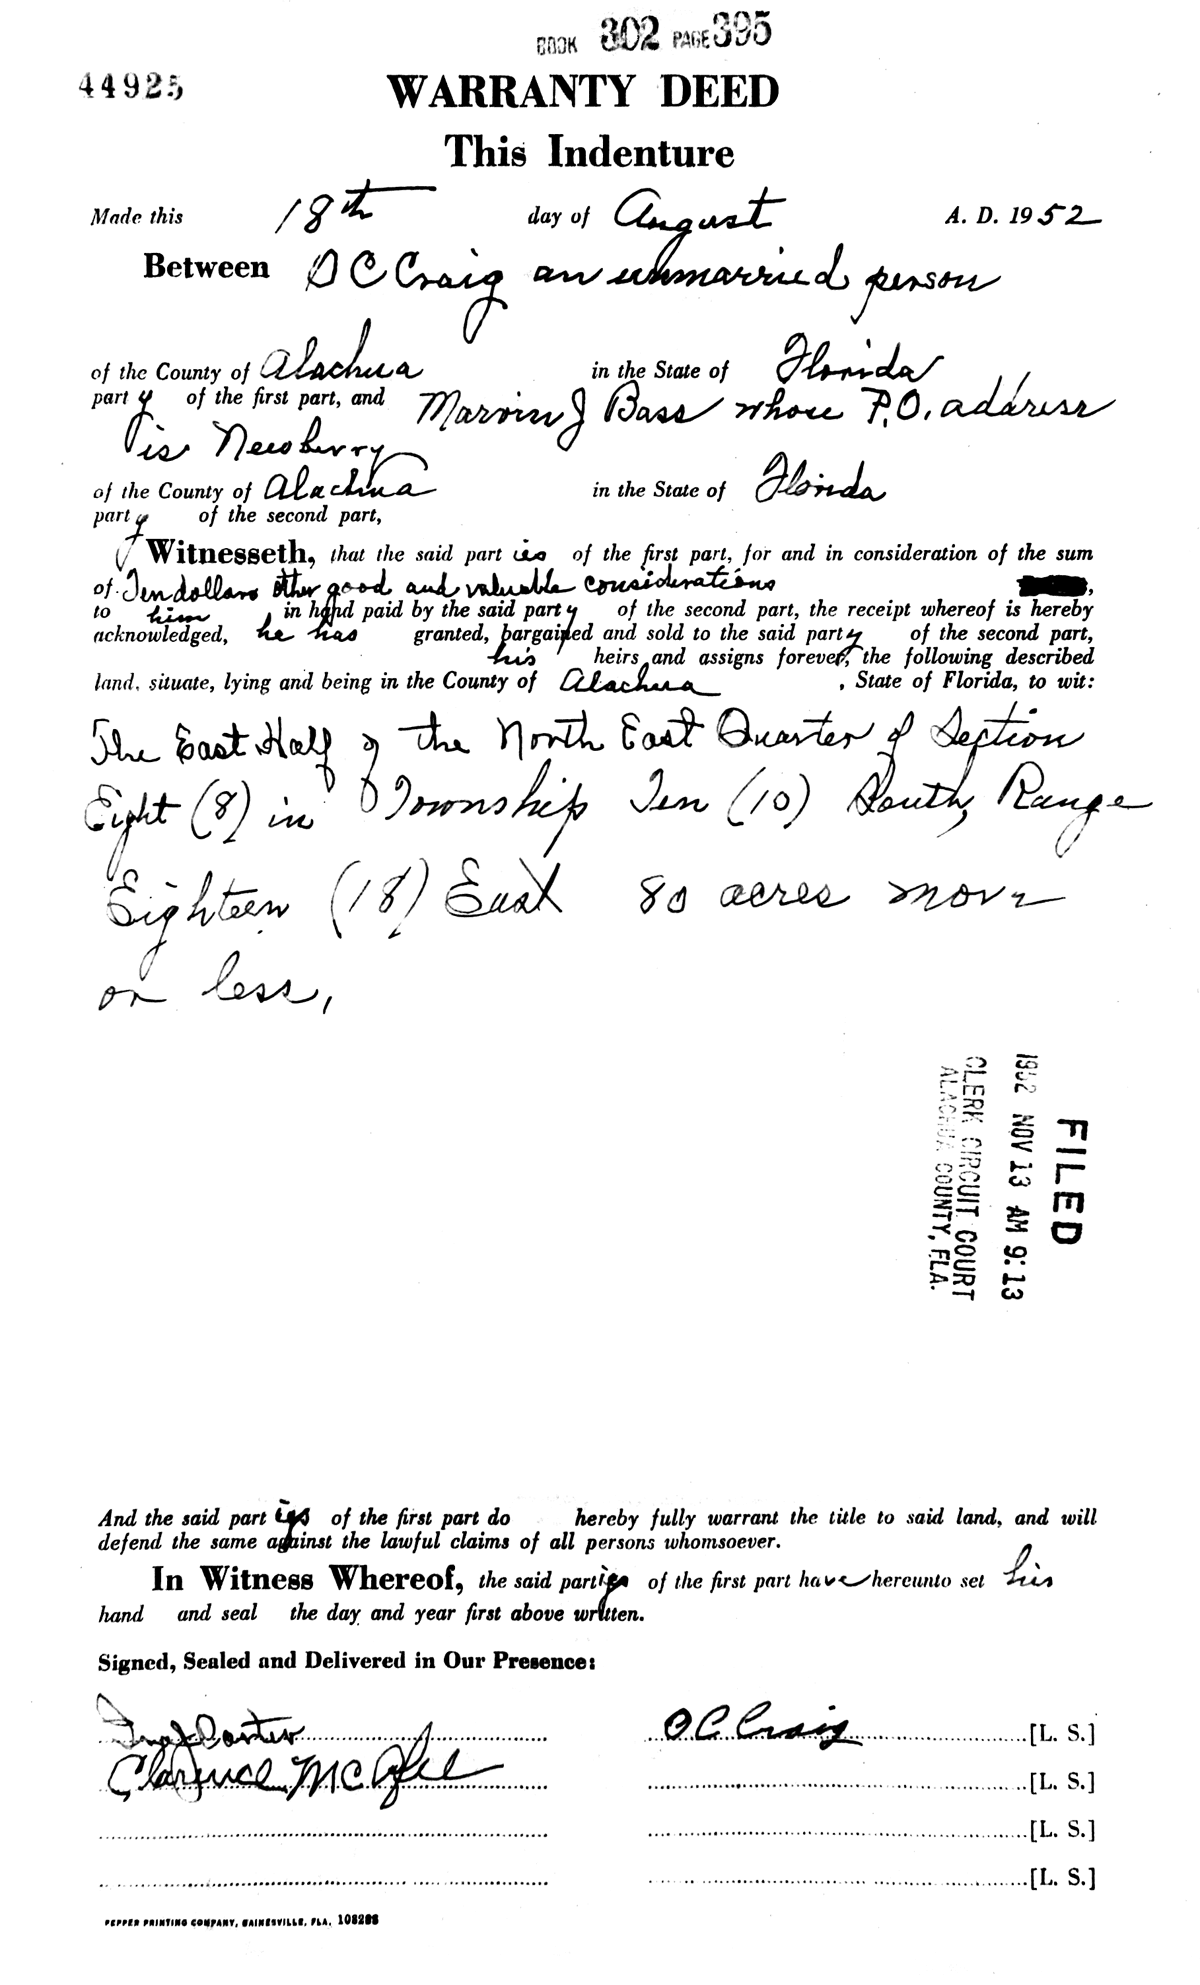 BOOK 302 PAGE 395
44925
WARRANTY DEED
This Indenture
Made this 18th day of August A. D. 1952
Between O C Craig an unmarried person
of the County of Alachua in the State of Florida
party of the first part, and Marvin J Bass whose P.O. address
is Newberry
of the County of Alachua in the State of Florida
party of the second part,
Witnesseth, that the said part ies of the first part, for and in consideration of the sum
of Ten dollars other good and valuable considerations ,
to him, in hand paid by the said party of the second part, the receipt whereof is hereby
acknowledged, he has granted, bargained and sold to the said party of the second part,
his heirs and assigns forever, the following described
land, situate, lying and being in the County of Alachua , State of Florida, to wit:
The East Half of the North East Quarter of Section
Eight (8) in Township Ten (10) South, Range
Eighteen (18) East 80 acres more
or less,
FILED
1952 NOV 13 AM 9:13
CLERK CIRCUIT COURT
ALACHUA COUNTY, FLA.
And the said part ies of the first part do hereby fully warrant the title to said land, and will
defend the same against the lawful claims of all persons whomsoever.
In Witness Whereof, the said parties of the first part have hereunto set his
hand and seal the day and year first above written.
Signed, Sealed and Delivered in Our Presence:
Carter O C Craig [L. S.]
Clarence McAfee [L. S.]
[L. S.]
[L. S.]
PEPPER PRINTING COMPANY, GAINESVILLE, FLA.